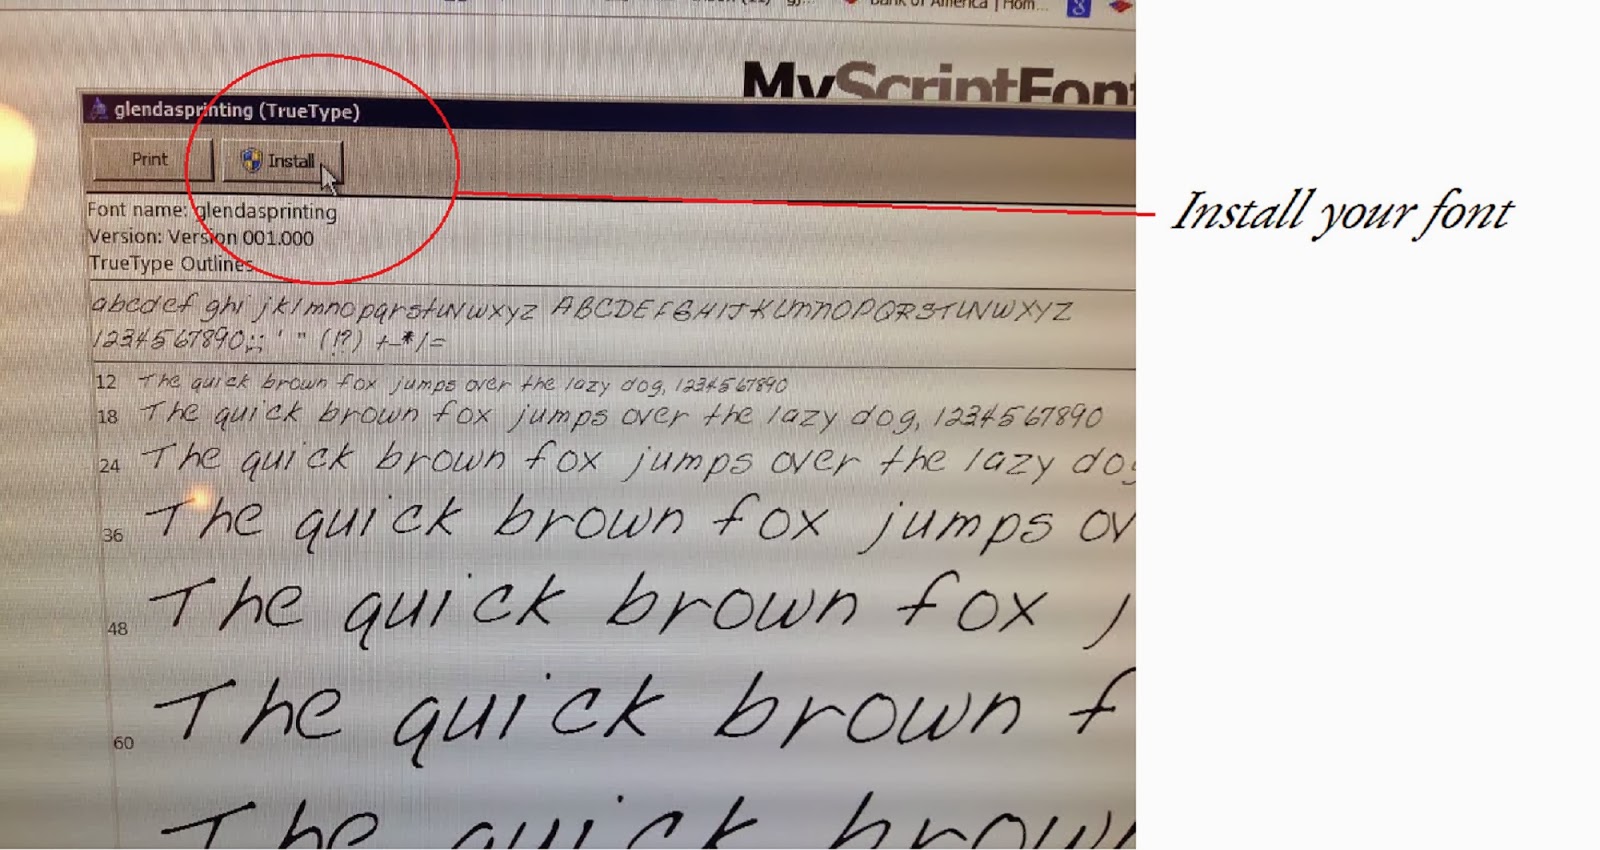 Bank of America | Hom...
MyScriptFont
glendasprinting (TrueType)
Print
Install
Font name: glendasprinting
Version: Version 001.000
TrueType Outlines
Install your font
abcdef ghi jklmnopqrstuvwxyz ABCDEFGHIJKLMNOPQRSTUVWXYZ
1234567890.:,; ' " (!?) +-*/=
12 The quick brown fox jumps over the lazy dog, 1234567890
18 The quick brown fox jumps over the lazy dog, 1234567890
24 The quick brown fox jumps over the lazy dog
36 The quick brown fox jumps ov
48 The quick brown fox j
60 The quick brown f
The quick brown